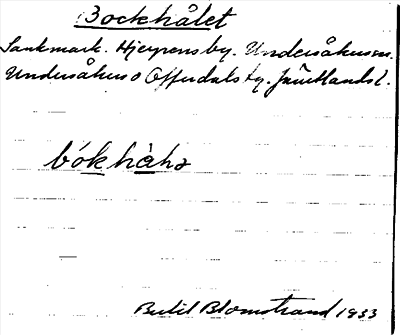 Bockhålet
Sankmark. Hjerpens by. Undersåkers sn.
Undersåkers o Offerdals tg. Jämtlands l.
bókhàhə
Bertil Blomstrand 1933